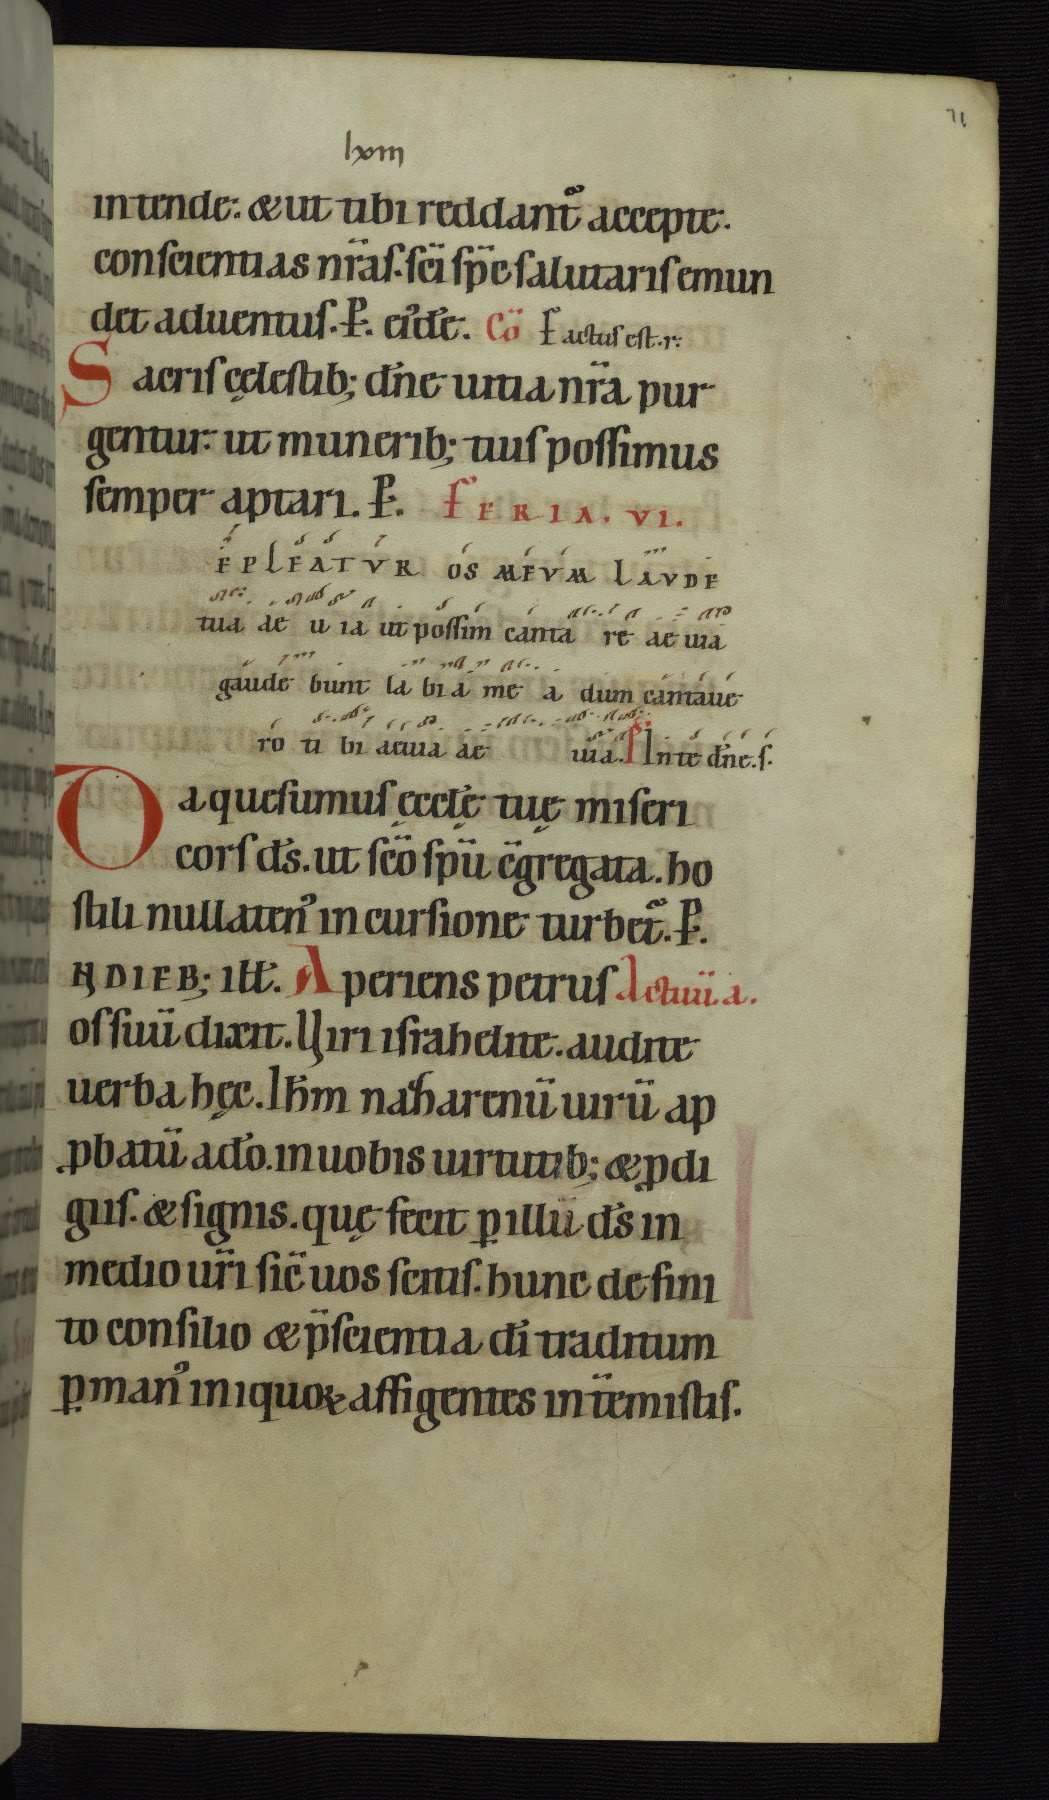 71
lxiii
intende: & ut tibi reddant᷑ accepte.
conscientias nr̅as. sc̅i sp̅c salutaris emun
det aduentus. P̵. eiꝰdē. Co̅ Factus est. r.
Sacris cęlestib; dn̅e uitia nr̅a pur
gentur: ut munerib; tuis possimus
semper aptari. P̵. FERIA. VI.
EPLEATVR OS MEVM LAVDE
tua ae u ia ut possim canta re ae uia
gaude bunt la bi a me a dum cantaue
ro ti bi aeuia ae uia. P̅s In te dn̅e. s.
Da quesumus ęccłę tuę miseri
cors d̅s. ut sc̅o sp̅u c̅gregata. ho
stili nullatenꝰ incursione turbet᷑. P̵.
IN DIEB; ill̅. Aperiens petrus Actuu̅ a.
os suu̅ dixit. Viri israhelite. audite
uerba hęc. Ih̅m nazarenu̅ uiru̅ ap
ꝓbatu̅ a do̅. in uobis uirtutib; & ꝓdi
giis. & signis. quę fecit ꝑ illu̅ d̅s in
medio ur̅i sic̅ uos scitis. hunc defini
to consilio & p̅scientia di̅ traditum
ꝑ manꝰ iniquoꝝ affigentes inte̅mistis.